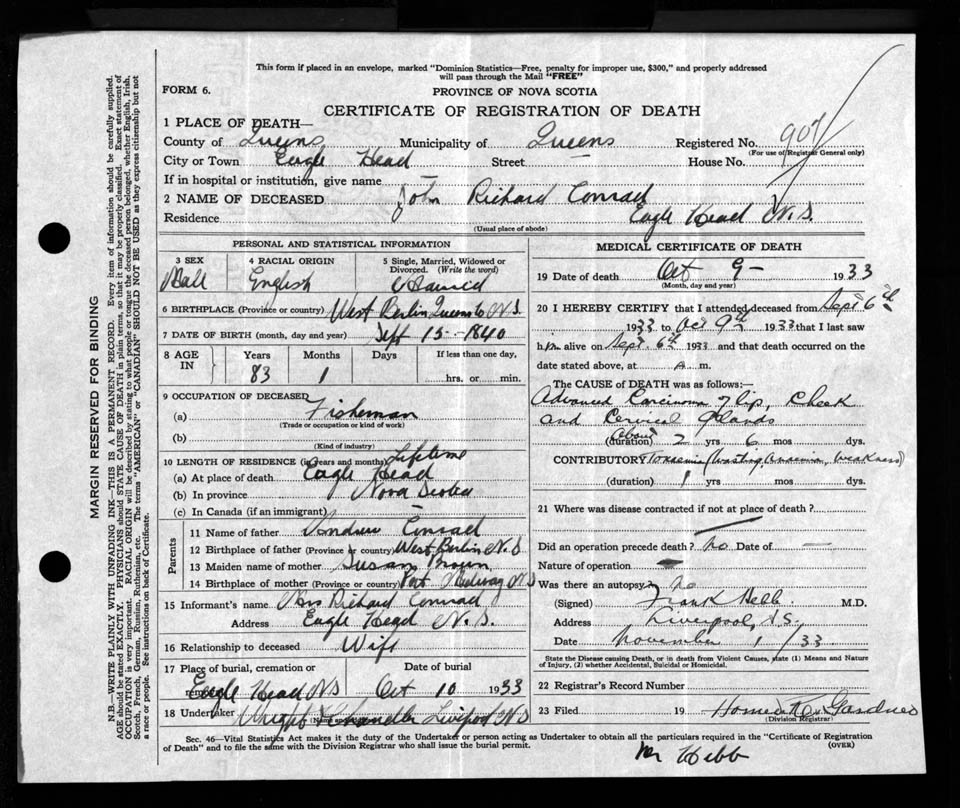 This form if placed in an envelope, marked "Dominion Statistics—Free, penalty for improper use, $300," and properly addressed
will pass through the Mail "FREE"
FORM 6.
PROVINCE OF NOVA SCOTIA
CERTIFICATE OF REGISTRATION OF DEATH
1 PLACE OF DEATH—
County of Queens Municipality of Queens Registered No. 907
(For use of Registrar General only)
City or Town Eagle Head Street — House No.
If in hospital or institution, give name —
2 NAME OF DECEASED John Richard Conrad
Residence Eagle Head N.S.
(Usual place of abode)
PERSONAL AND STATISTICAL INFORMATION
3 SEX 4 RACIAL ORIGIN 5 Single, Married, Widowed or Divorced. (Write the word)
Mall English Married
6 BIRTHPLACE (Province or country) West Berlin Queens Co N.S.
7 DATE OF BIRTH (month, day and year) Sept 15 - 1840
8 AGE IN Years Months Days If less than one day,
83 1 hrs. or min.
9 OCCUPATION OF DECEASED
(a) Fisheman
(Trade or occupation or kind of work)
(b)
(Kind of industry)
10 LENGTH OF RESIDENCE (in years and months) Lifetime
(a) At place of death Eagle Head
(b) In province Nova Scotia
(c) In Canada (if an immigrant) —
Parents
11 Name of father Andrew Conrad
12 Birthplace of father (Province or country) West Berlin N.S
13 Maiden name of mother Susan Brown
14 Birthplace of mother (Province or country) Port Medway NS
15 Informant's name Mrs Richard Conrad
Address Eagle Head N.S.
16 Relationship to deceased Wife
17 Place of burial, cremation or removal Date of burial
Eagle Head NS Oct 10 1933
18 Undertaker Chandler Liverpool N.S
MEDICAL CERTIFICATE OF DEATH
19 Date of death Oct 9 - 1933
(Month, day and year)
20 I HEREBY CERTIFY that I attended deceased from Sept 6th
1933 to Oct 9th 1933 that I last saw
him alive on Sept. 6th 1933 and that death occurred on the
date stated above, at A m.
The CAUSE of DEATH was as follows:—
Advanced Carcinoma of lip cheek
and Cervical glands
(duration) About 2 yrs 6 mos dys.
CONTRIBUTORY Toxaemia (Wasting Anaemia, weakness)
(duration) 1 yrs mos dys.
21 Where was disease contracted if not at place of death?
Did an operation precede death? no Date of —
Nature of operation —
Was there an autopsy? no
(Signed) Frank Hebb M.D.
Address Liverpool, N.S.
Date November 1 / 33
State the Disease causing Death, or in death from Violent Causes, state (1) Means and Nature
of Injury, (2) whether Accidental, Suicidal or Homicidal.
22 Registrar's Record Number
23 Filed 19 Gardner
(Division Registrar)
Sec. 46—Vital Statistics Act makes it the duty of the Undertaker or person acting as Undertaker to obtain all the particulars required in the "Certificate of Registration
of Death" and to file the same with the Division Registrar who shall issue the burial permit.
(OVER)
Mr Hebb
MARGIN RESERVED FOR BINDING
N.B.—WRITE PLAINLY WITH UNFADING INK—THIS IS A PERMANENT RECORD. Every item of information should be carefully supplied.
AGE should be stated EXACTLY. PHYSICIANS should STATE CAUSE OF DEATH in plain terms, so that it may be properly classified. Exact statement of
OCCUPATION is very important. RACIAL ORIGIN will be described by stating to what people or tongue the deceased person belonged, whether English, Irish,
Scotch, French, German, Russian, Ruthenian, etc. The terms "AMERICAN" or "CANADIAN" SHOULD NOT BE USED as they express citizenship but not
a race or people. See instructions on back of Certificate.